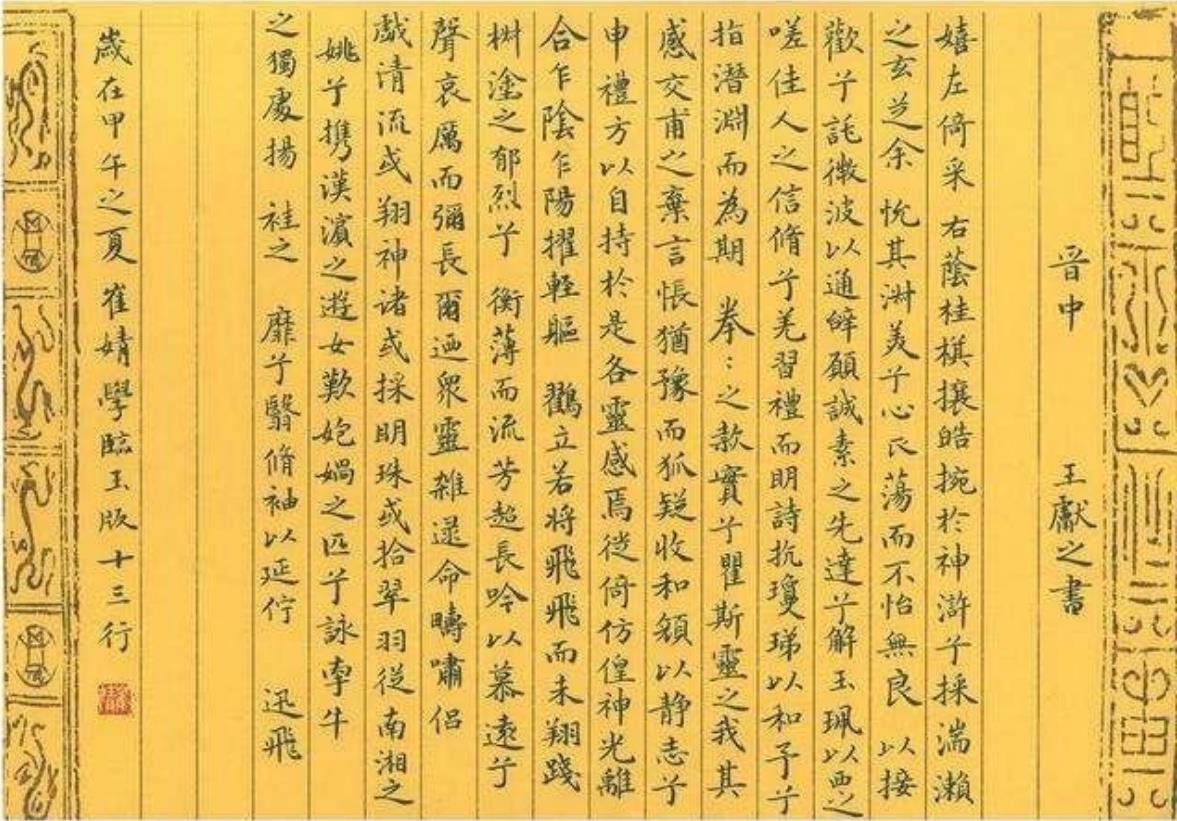 晉中 王獻之書
嬉左倚采 右蔭桂棋攘皓捥於神滸兮採湍瀨
之玄芝余 悅其淋美兮心蕩而不怡無良 以接
歡兮託微波以通辭願誠素之先達兮解玉珮以要之
嗟佳人之信脩兮羌習禮而明詩抗瓊珶以和予兮
指潛淵而為期 拳：之款實兮瞿斯靈之我其
感交甫之棄言悵猶豫而狐疑收和顏以静志兮
申禮方以自持於是各靈感焉徙倚仿偟神光離
合乍陰乍陽擢輕軀 鶴立若將飛飛而未翔踐
椒塗之郁烈兮 衡薄而流芳超長吟以慕遠兮
聲哀厲而彌長爾迺衆靈雜遝命疇嘯侣
戲清流或翔神渚或採明珠或拾翠羽從南湘之
姚兮携漢濱之遊女歎匏媧之匹兮詠牽牛
之獨處揚 袿之 靡兮翳脩袖以延佇 迅飛
歲在甲午之夏崔婧學臨玉版十三行